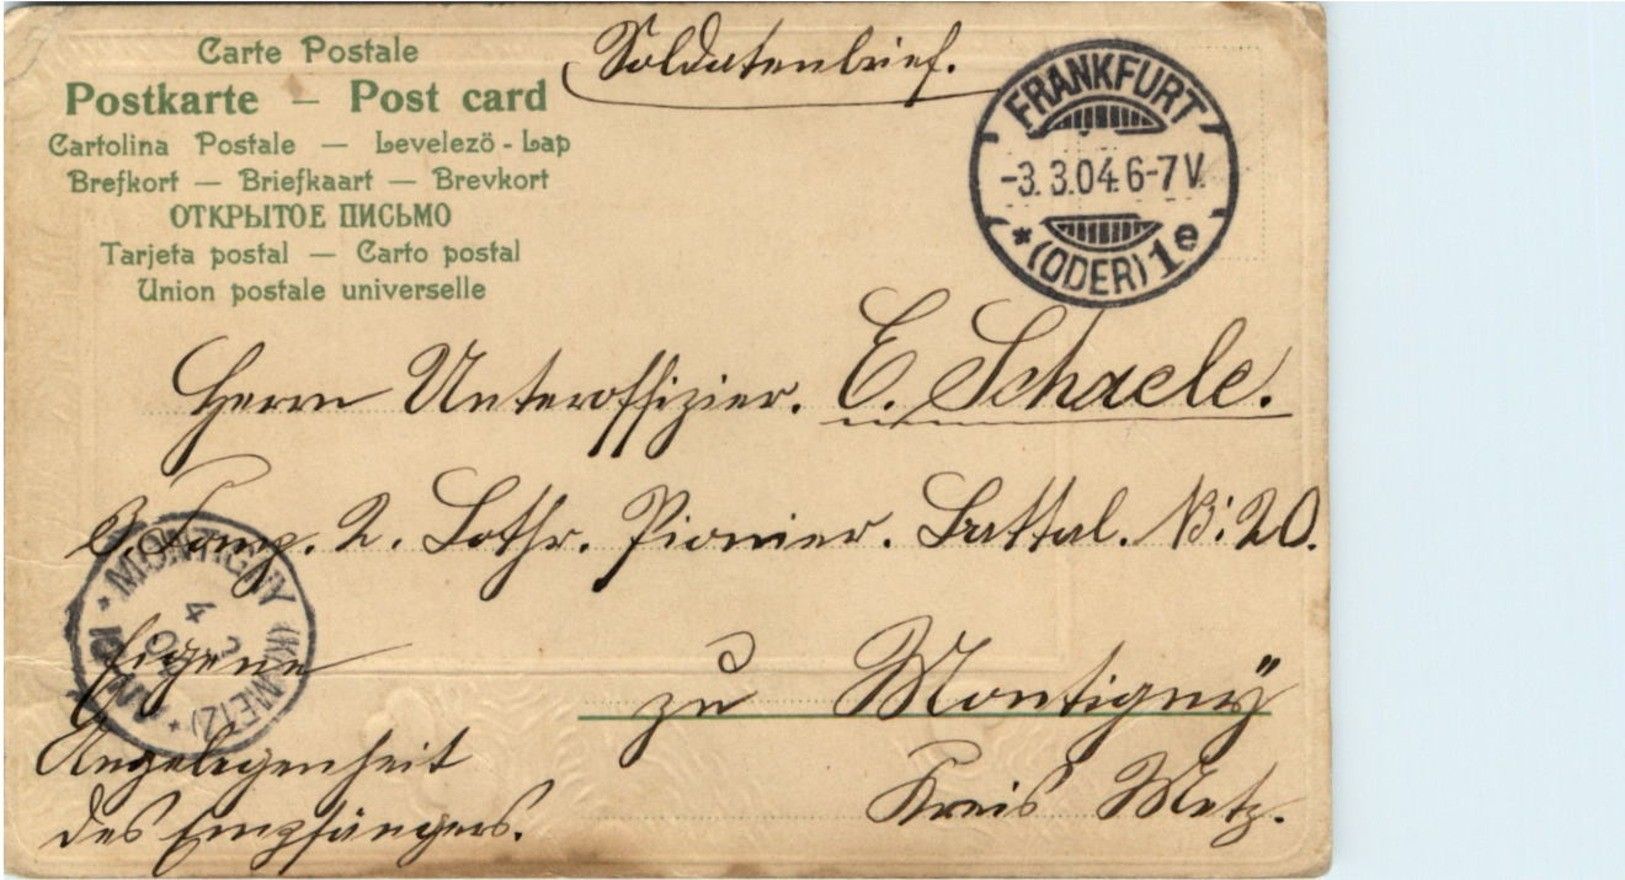 Carte Postale
Postkarte — Post card
Cartolina Postale — Levelezö - Lap
Brefkort — Briefkaart — Brevkort
ОТКРЫТОЕ ПИСЬМО
Tarjeta postal — Carto postal
Union postale universelle
Soldatenbrief.
FRANKFURT
-3.3.04. 6-7 V.
* (ODER) 1e
Herrn Unteroffizier. E. Schaele.
3. Comp. 2. Lothr. Pionier. Battal. N: 20.
MONTIGNY
4 3
(KR. METZ)
Eigene
zu Montigny
Angelegenheit
Kreis Metz.
des Empfängers.